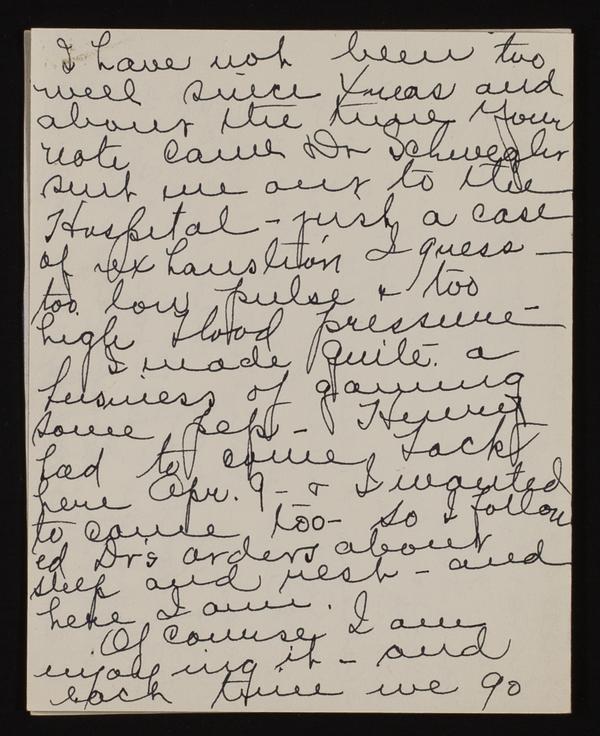 I have not been too
well since Xmas and
about the time your
note came Dr Schwegler
sent me out to the
Hospital - just a case
of exhaustion I guess -
too low pulse & too
high blood pressure -
I made quite a
business of gaining
some pep - Henry
had to come back
here Apr. 9 - & I wanted
to come too - so I follow
ed Dr's orders about
sleep and rest - and
here I am.
Of course, I am
enjoying it - and
each time we go